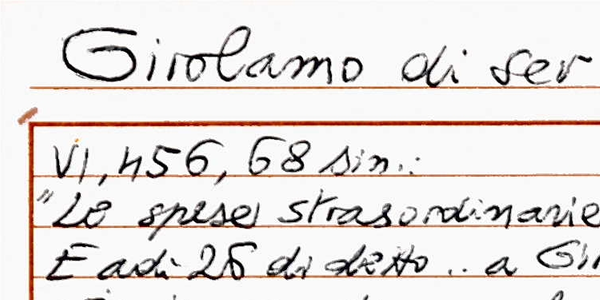 Girolamo di ser
VI, 456, 68 sin.:
"Le spese strasordinarie
E adì 26 di detto .. a Gi